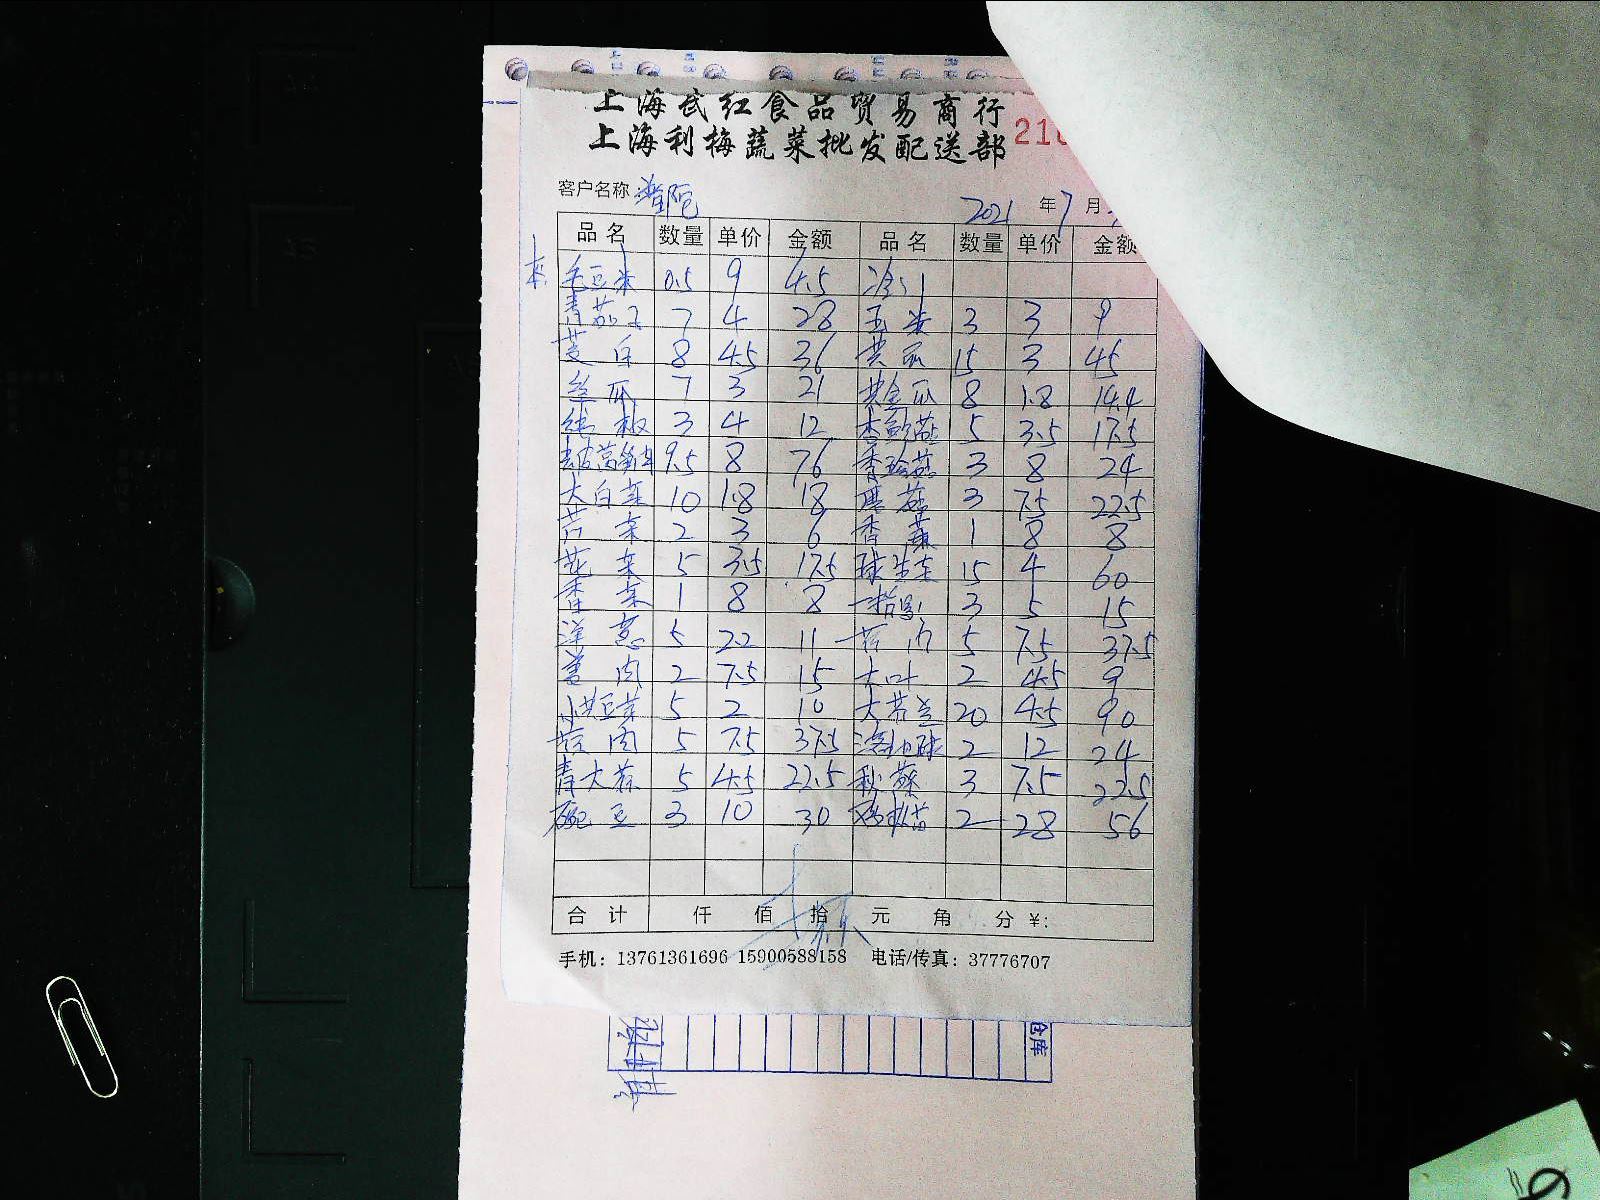 上海武红食品贸易商行
上海利梅蔬菜批发配送部
客户名称 普陀 2021 年 7 月
品名 数量 单价 金额 品名 数量 单价 金额
毛豆米 0.5 9 4.5
青茄子 7 4 28 玉米 3 3 9
茭白 8 4.5 36 黄瓜 15 3 45
丝瓜 7 3 21 黄金瓜 8 1.8 14.4
3 4 12 5 3.5 17.5
去皮莴笋 9.5 8 76 3 8 24
大白菜 10 1.8 18 蘑菇 3 7.5 22.5
芹菜 2 3 6 香 1 8 8
花菜 5 3.5 17.5 球生菜 15 4 60
香菜 1 8 8 3 5 15
洋葱 5 2.2 11 5 7.5 37.5
姜肉 2 7.5 15 大叶 2 4.5 9
小黄豆芽 5 2 10 大芥兰 20 4.5 90
肉 5 7.5 37.5 2 12 24
青大蒜 5 4.5 22.5 秋葵 3 7.5 22.5
豌豆 3 10 30 2 28 56
合计 仟 佰 拾 元 角 分 ¥:
手机: 13761361696 15900588158 电话/传真: 37776707
仓库